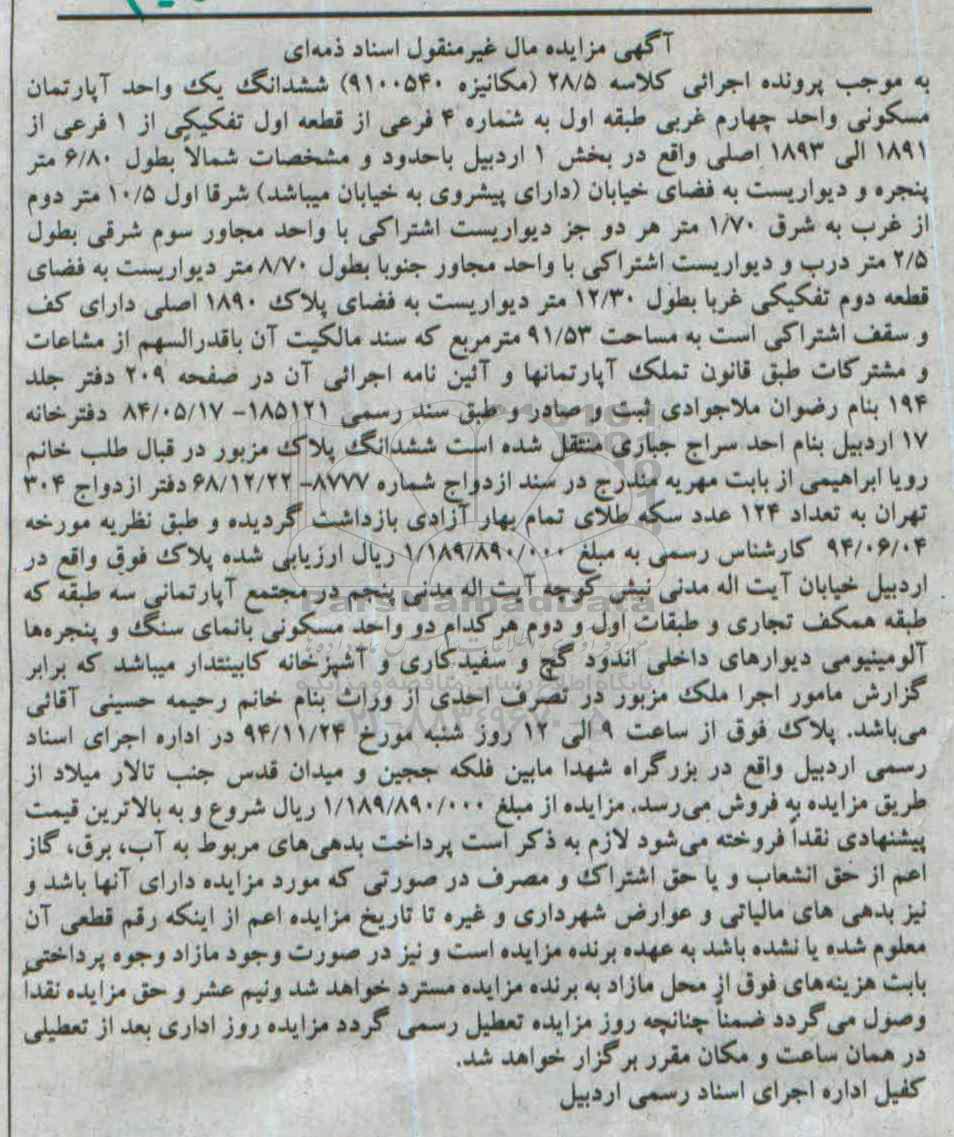 آگهی مزایده مال غیرمنقول اسناد ذمه‌ای
به موجب پرونده اجرائی کلاسه ۲۸/۵ (مکانیزه ۹۱۰۰۵۴۰) ششدانگ یک واحد آپارتمان
مسکونی واحد چهارم غربی طبقه اول به شماره ۴ فرعی از قطعه اول تفکیکی از ۱ فرعی از
۱۸۹۱ الی ۱۸۹۳ اصلی واقع در بخش ۱ اردبیل باحدود و مشخصات شمالا بطول ۶/۸۰ متر
پنجره و دیواریست به فضای خیابان (دارای پیشروی به خیابان میباشد) شرقا اول ۱۰/۵ متر دوم
از غرب به شرق ۱/۷۰ متر هر دو جز دیواریست اشتراکی با واحد مجاور سوم شرقی بطول
۲/۵ متر درب و دیواریست اشتراکی با واحد مجاور جنوبا بطول ۸/۷۰ متر دیواریست به فضای
قطعه دوم تفکیکی غربا بطول ۱۲/۳۰ متر دیواریست به فضای پلاک ۱۸۹۰ اصلی دارای کف
و سقف اشتراکی است به مساحت ۹۱/۵۳ مترمربع که سند مالکیت آن باقدرالسهم از مشاعات
و مشترکات طبق قانون تملک آپارتمانها و آئین نامه اجرائی آن در صفحه ۲۰۹ دفتر جلد
۱۹۴ بنام رضوان ملاجوادی ثبت و صادر و طبق سند رسمی ۱۸۵۱۲۱- ۸۴/۰۵/۱۷ دفترخانه
۱۷ اردبیل بنام احد سراج جباری منتقل شده است ششدانگ پلاک مزبور در قبال طلب خانم
رویا ابراهیمی از بابت مهریه مندرج در سند ازدواج شماره ۸۷۷۷- ۶۸/۱۲/۲۲ دفتر ازدواج ۳۰۴
تهران به تعداد ۱۲۴ عدد سکه طلای تمام بهار آزادی بازداشت گردیده و طبق نظریه مورخه
۹۴/۰۶/۰۴ کارشناس رسمی به مبلغ ۱/۱۸۹/۸۹۰/۰۰۰ ریال ارزیابی شده پلاک فوق واقع در
اردبیل خیابان آیت اله مدنی نبش کوچه آیت اله مدنی پنجم در مجتمع آپارتمانی سه طبقه که
طبقه همکف تجاری و طبقات اول و دوم هر کدام دو واحد مسکونی بانمای سنگ و پنجره‌ها
آلومینیومی دیوارهای داخلی اندود گچ و سفیدکاری و آشپزخانه کابینتدار میباشد که برابر
گزارش مامور اجرا ملک مزبور در تصرف احدی از وراث بنام خانم رحیمه حسینی آقائی
می‌باشد. پلاک فوق از ساعت ۹ الی ۱۲ روز شنبه مورخ ۹۴/۱۱/۲۴ در اداره اجرای اسناد
رسمی اردبیل واقع در بزرگراه شهدا مابین فلکه ججین و میدان قدس جنب تالار میلاد از
طریق مزایده به فروش می‌رسد. مزایده از مبلغ ۱/۱۸۹/۸۹۰/۰۰۰ ریال شروع و به بالاترین قیمت
پیشنهادی نقداً فروخته می‌شود لازم به ذکر است پرداخت بدهی‌های مربوط به آب، برق، گاز
اعم از حق انشعاب و یا حق اشتراک و مصرف در صورتی که مورد مزایده دارای آنها باشد و
نیز بدهی های مالیاتی و عوارض شهرداری و غیره تا تاریخ مزایده اعم از اینکه رقم قطعی آن
معلوم شده یا نشده باشد به عهده برنده مزایده است و نیز در صورت وجود مازاد وجوه پرداختی
بابت هزینه‌های فوق از محل مازاد به برنده مزایده مسترد خواهد شد ونیم عشر و حق مزایده نقداً
وصول می‌گردد ضمناً چنانچه روز مزایده تعطیل رسمی گردد مزایده روز اداری بعد از تعطیلی
در همان ساعت و مکان مقرر برگزار خواهد شد.
کفیل اداره اجرای اسناد رسمی اردبیل
ParsNamadData